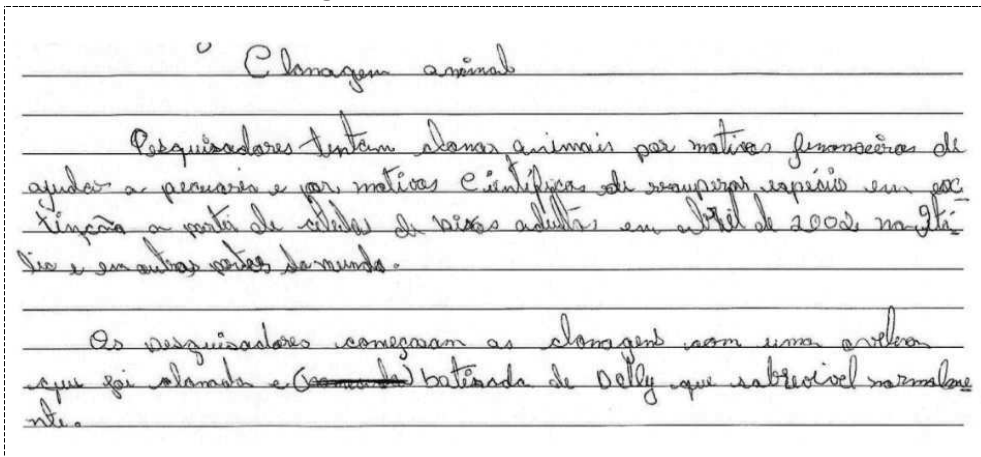 Clonagem animal
Pesquisadores tentam clonar animais por motivos finanaceiros de
ajudar a pecuaria e por motivos Científicos de recuperar espécis em exc
tinção a partir de celulas de bixos adultos em abril de 2002 na Itá-
lia e em outras partes do mundo.
Os pesquisadores começaram as clonagens com uma ovelera
que foi clonada e batisada de Dolly que sobrevivel normalme
nte.